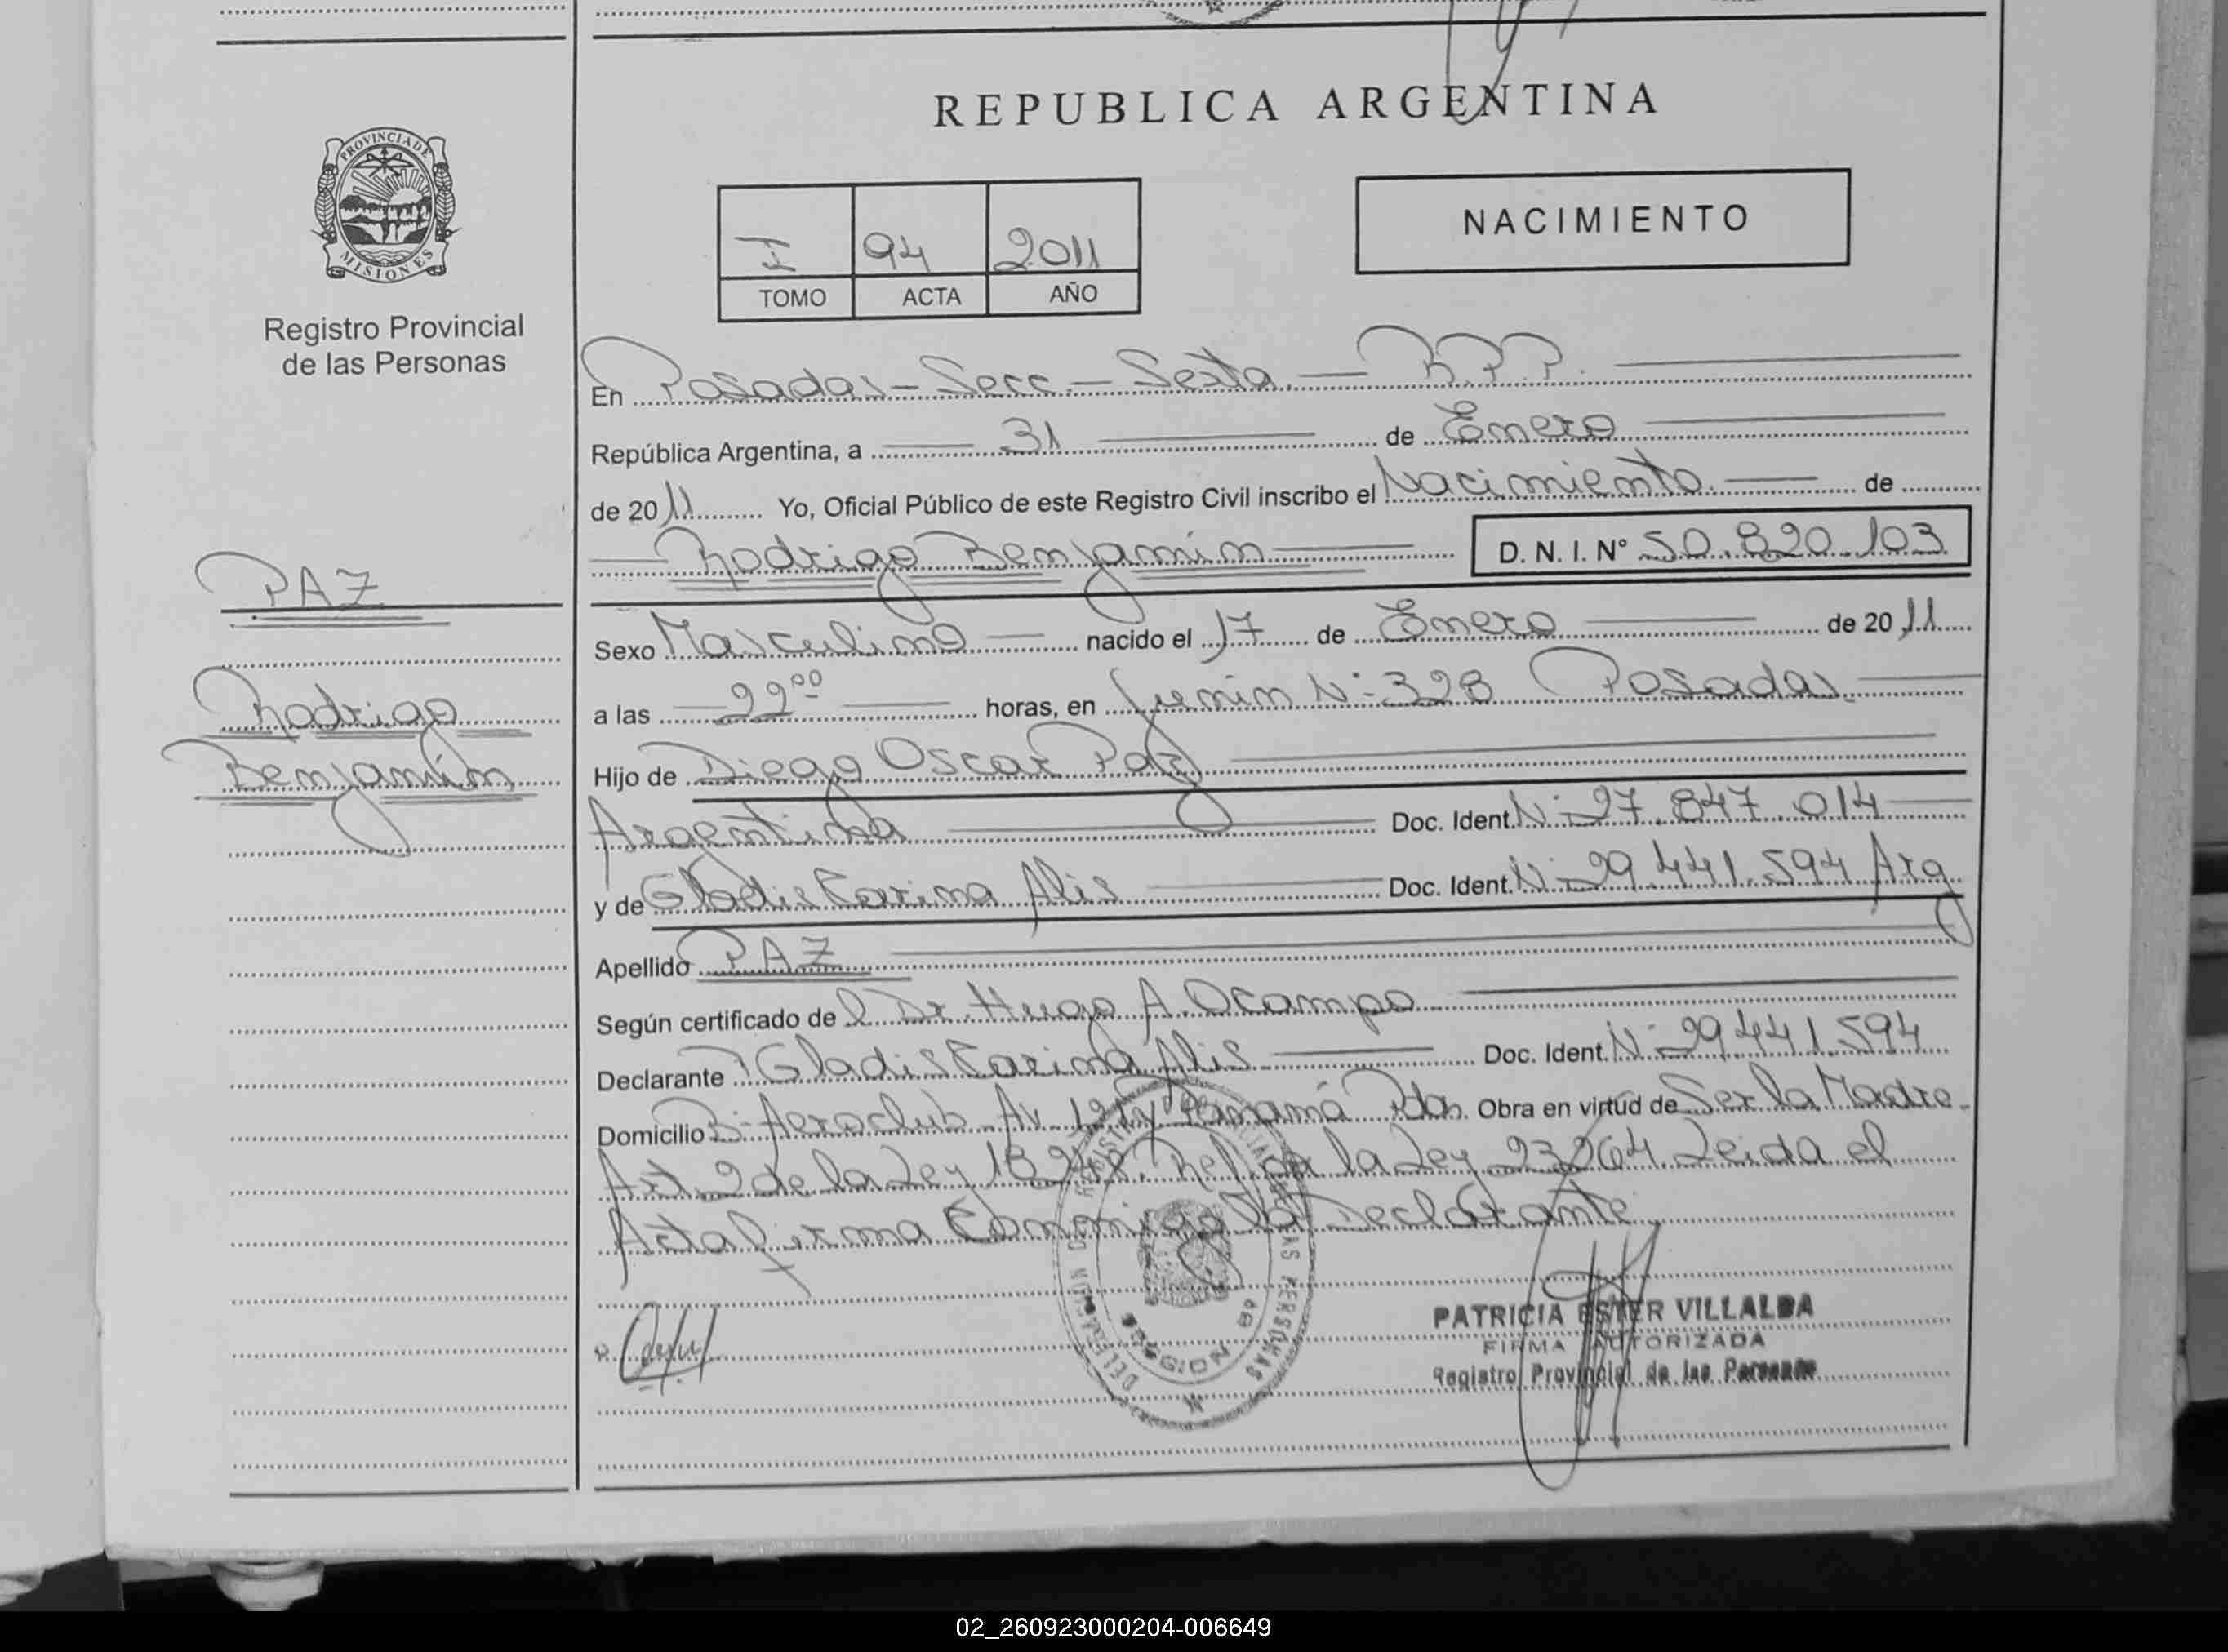 REPUBLICA ARGENTINA
PROVINCIA DE
MISIONES
Registro Provincial
de las Personas
I 94 2011
TOMO ACTA AÑO
NACIMIENTO
En Posadas - Secc. - Sexta. - R.P.P.
República Argentina, a 31 de Enero
de 2011 Yo, Oficial Público de este Registro Civil inscribo el Nacimiento de
Rodrigo Benjamín D. N. I. N° 50.820.103
PAZ
Rodrigo
Benjamín
Sexo Masculino nacido el 17 de Enero de 2011
a las 22 00 horas, en Junin N° 328 Posadas
Hijo de Diego Oscar Paz
Argentina Doc. Ident. N° 27.847.014
y de Gladis Karina Alis Doc. Ident. N° 29.441.594 Arg
Apellido PAZ
Según certificado del Dr. Hugo A. Ocampo
Declarante Gladis Karina Alis Doc. Ident. N° 29.441.594
Domicilio B° Aeroclub Av. 121 y Panamá Pdas. Obra en virtud de Ser la Madre
Art. 2 de la Ley 18.248. Ref. a la Ley 23264. Leida el
Acta firma Conmigo la Declarante
PATRICIA ESTER VILLALBA
FIRMA AUTORIZADA
Registro Provincial de las Personas
02_260923000204-006649